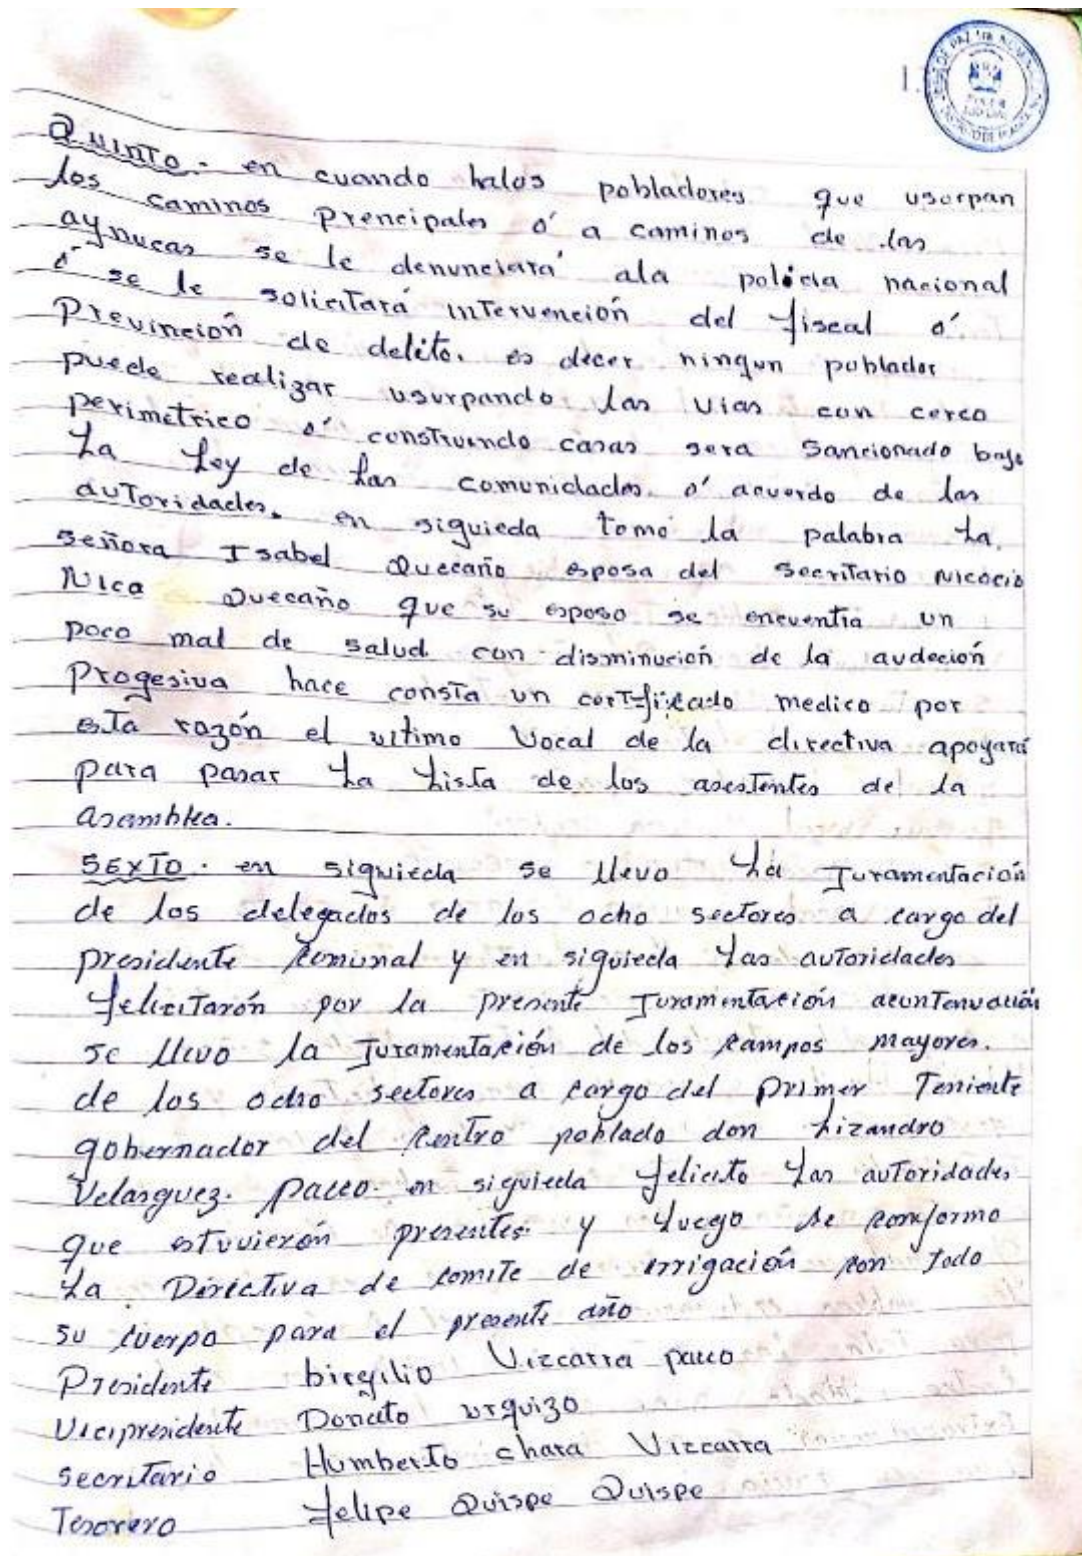 QUINTO.- en cuando halos pobladores que usurpan
los caminos Prencipales ó a caminos de las
aynucas se le denunciará ala policia nacional
ó se le solicitará intervención del fiscal ó
Previnción de delito. es decer ningun poblador
puede realizar usurpando las vias con cerco
perimetrico ó construendo casas sera Sancionado bajo
La Ley de Las comunidades ó acuerdo de las
autoridades. en siguieda tomo la palabra La
Señora Isabel Quecaño esposa del Secritario Nicocio
Nica Quecaño que su esposo se encuentra un
poco mal de salud con disminución de la audeción
Progesiva hace consta un certificado medico por
esta razón el ultimo Vocal de la directiva apoyará
para pasar La Lista de los asestentes de la
asamblea.
SEXTO. en siguieda se llevo La Juramentación
de los delegados de los ocho sectores a cargo del
presidente Comunal y en siguieda Las autoridades
felicitarón por la presente Juramentación acontenuación
se llevo la Juramentación de los Campos mayores.
de los ocho sectores a cargo del primer Teniente
gobernador del Centro poblado don Lizandro
Velasquez. pacco. en siguieda felicito Las autoridades
que estuvierón presentes. y Luego se Conformo
La Directiva de comite de irrigación con todo
su cuerpo para el presente año
Presidente birgilio Vizcarra pacco
Vicipresidente Donato urquizo
Secritario Humberto chara Vizcarra
Tesorero felipe Quispe Quispe